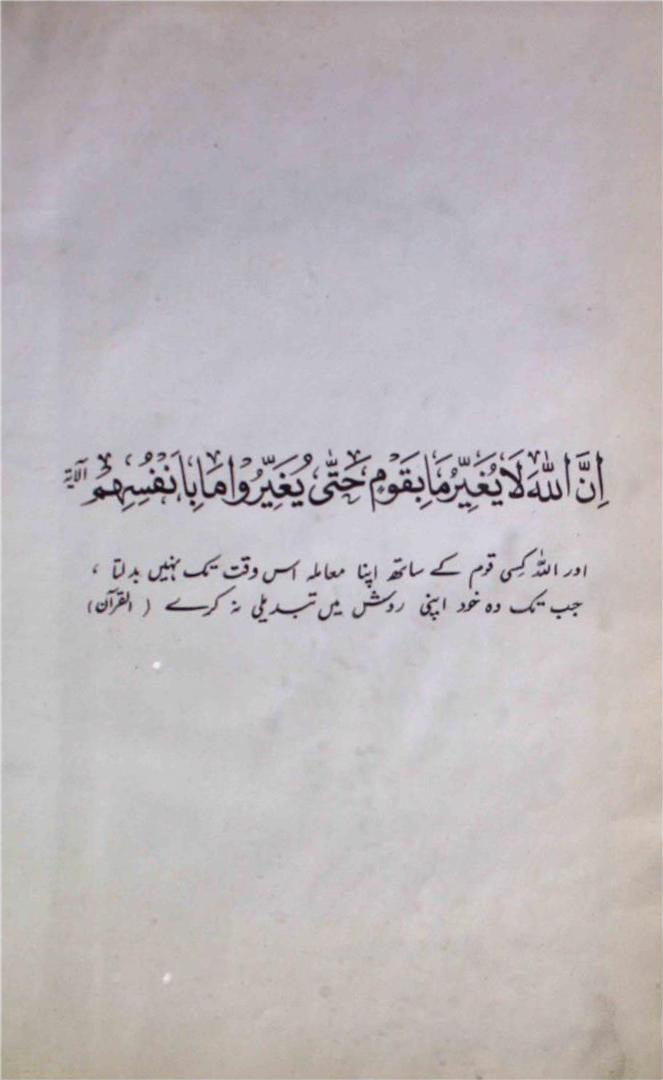 اِنَّ اللّٰهَ لَا يُغَيِّرُ مَا بِقَوْمٍ حَتّٰى يُغَيِّرُوْا مَا بِاَنْفُسِهِمْ الآية
اور اللّٰہ کِسی قوم کے ساتھ اپنا معاملہ اس وقت تک نہیں بدلتا ،
جب تک وہ خود اپنی روش میں تبدیلی نہ کرے ( القرآن )